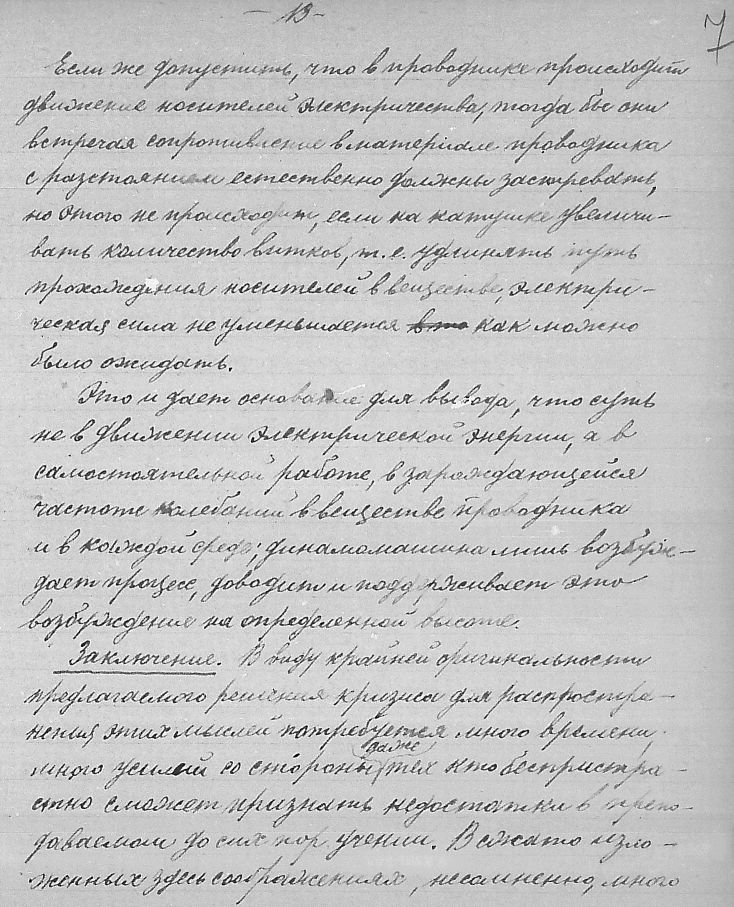 - 13 -
7
Если же допустить, что в проводнике происходит
движение носителей электричества, тогда бы они
встречая сопротивление в материале проводника
с разстоянием естественно должны застревать,
но этого не происходит, если на катушке увеличи-
вать количество витков, т.е. удлинять путь
прохождения носителей в веществе, электри-
ческая сила не уменьшается как можно
было ожидать.
Это и дает основание для вывода, что суть
не в движении электрической энергии, а в
самостоятельной работе, в зарождающейся
частоте колебаний в веществе проводника
и в каждой среде; динамомашина лишь возбуж-
дает процесс, доводит и поддерживает это
возбуждение на определенной высоте.
Заключение. В виду крайней оригинальности
предлагаемого решения кризиса для распростра-
нения этих мыслей потребуется много времени,
много усилий со стороны даже тех кто беспристра-
стно сможет признать недостатки в препо-
даваемом до сих пор учении. В сжато изло-
женных здесь соображениях, несомненно, много